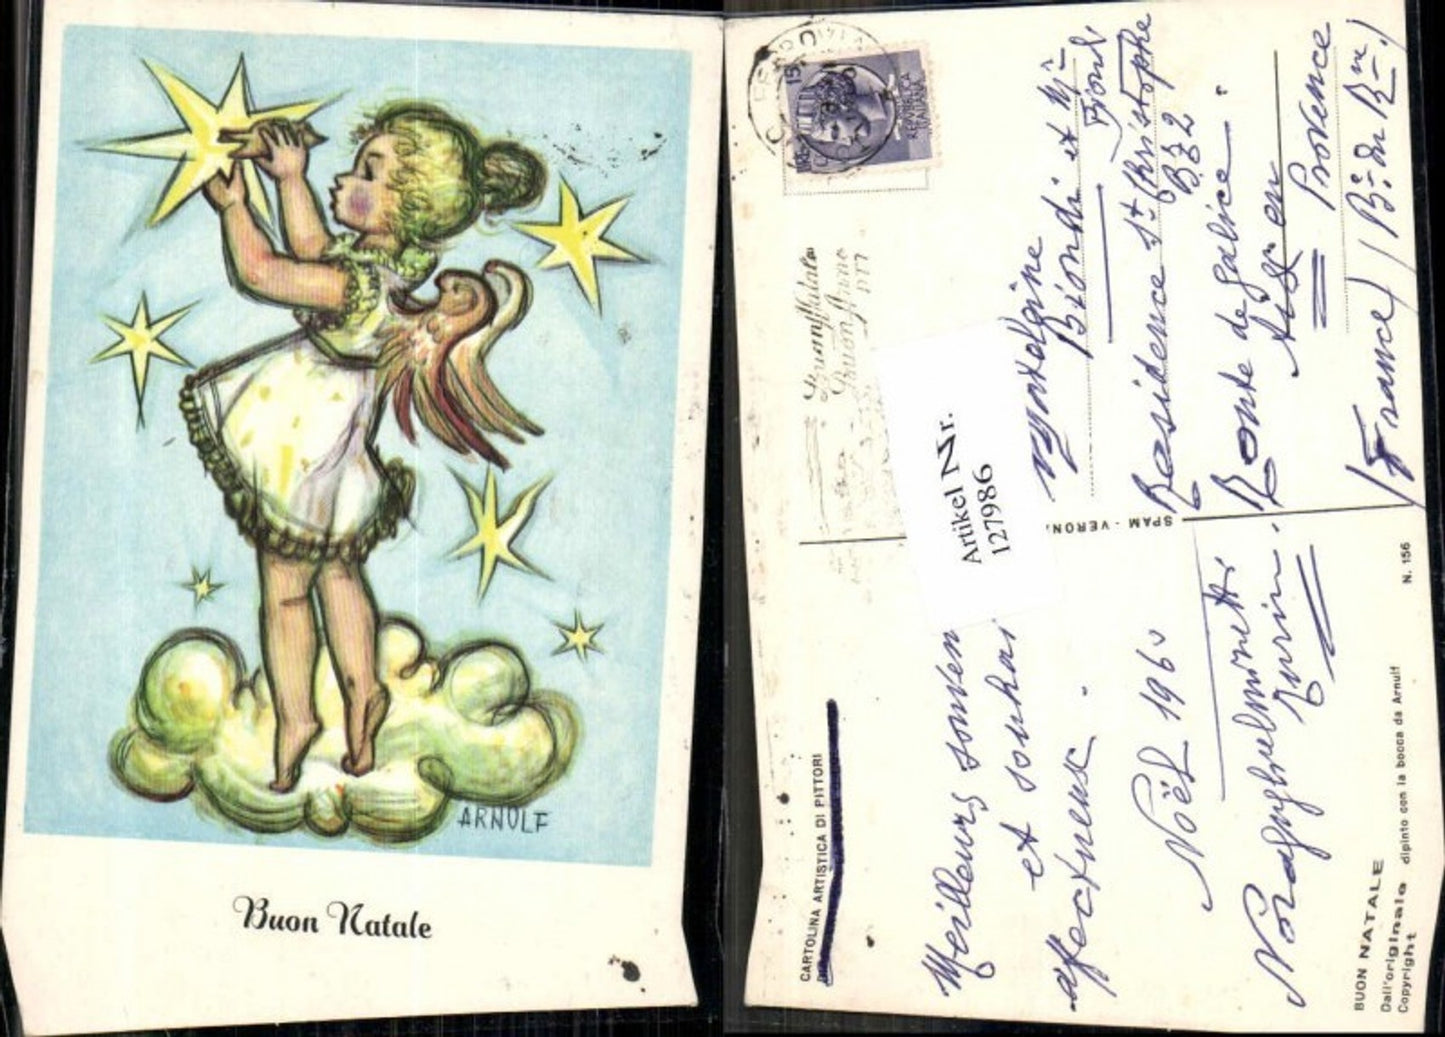 ARNULF
Buon Natale
REPUBBLICA
ITALIANA
Buon Natale
Buon Anno
Artikel Nr.
127986
Biondi et
Résidence St Christophe
Route de Galice
Aix en
Provence
(France) (B. du Rne)
SPAM - VERON
N. 156
CARTOLINA ARTISTICA DI PITTORI
Meilleurs souven
et souhai
affectueux.
Noël 1960
Turin
BUON NATALE
Dall'originale dipinto con la bocca da Arnulf
Copyright